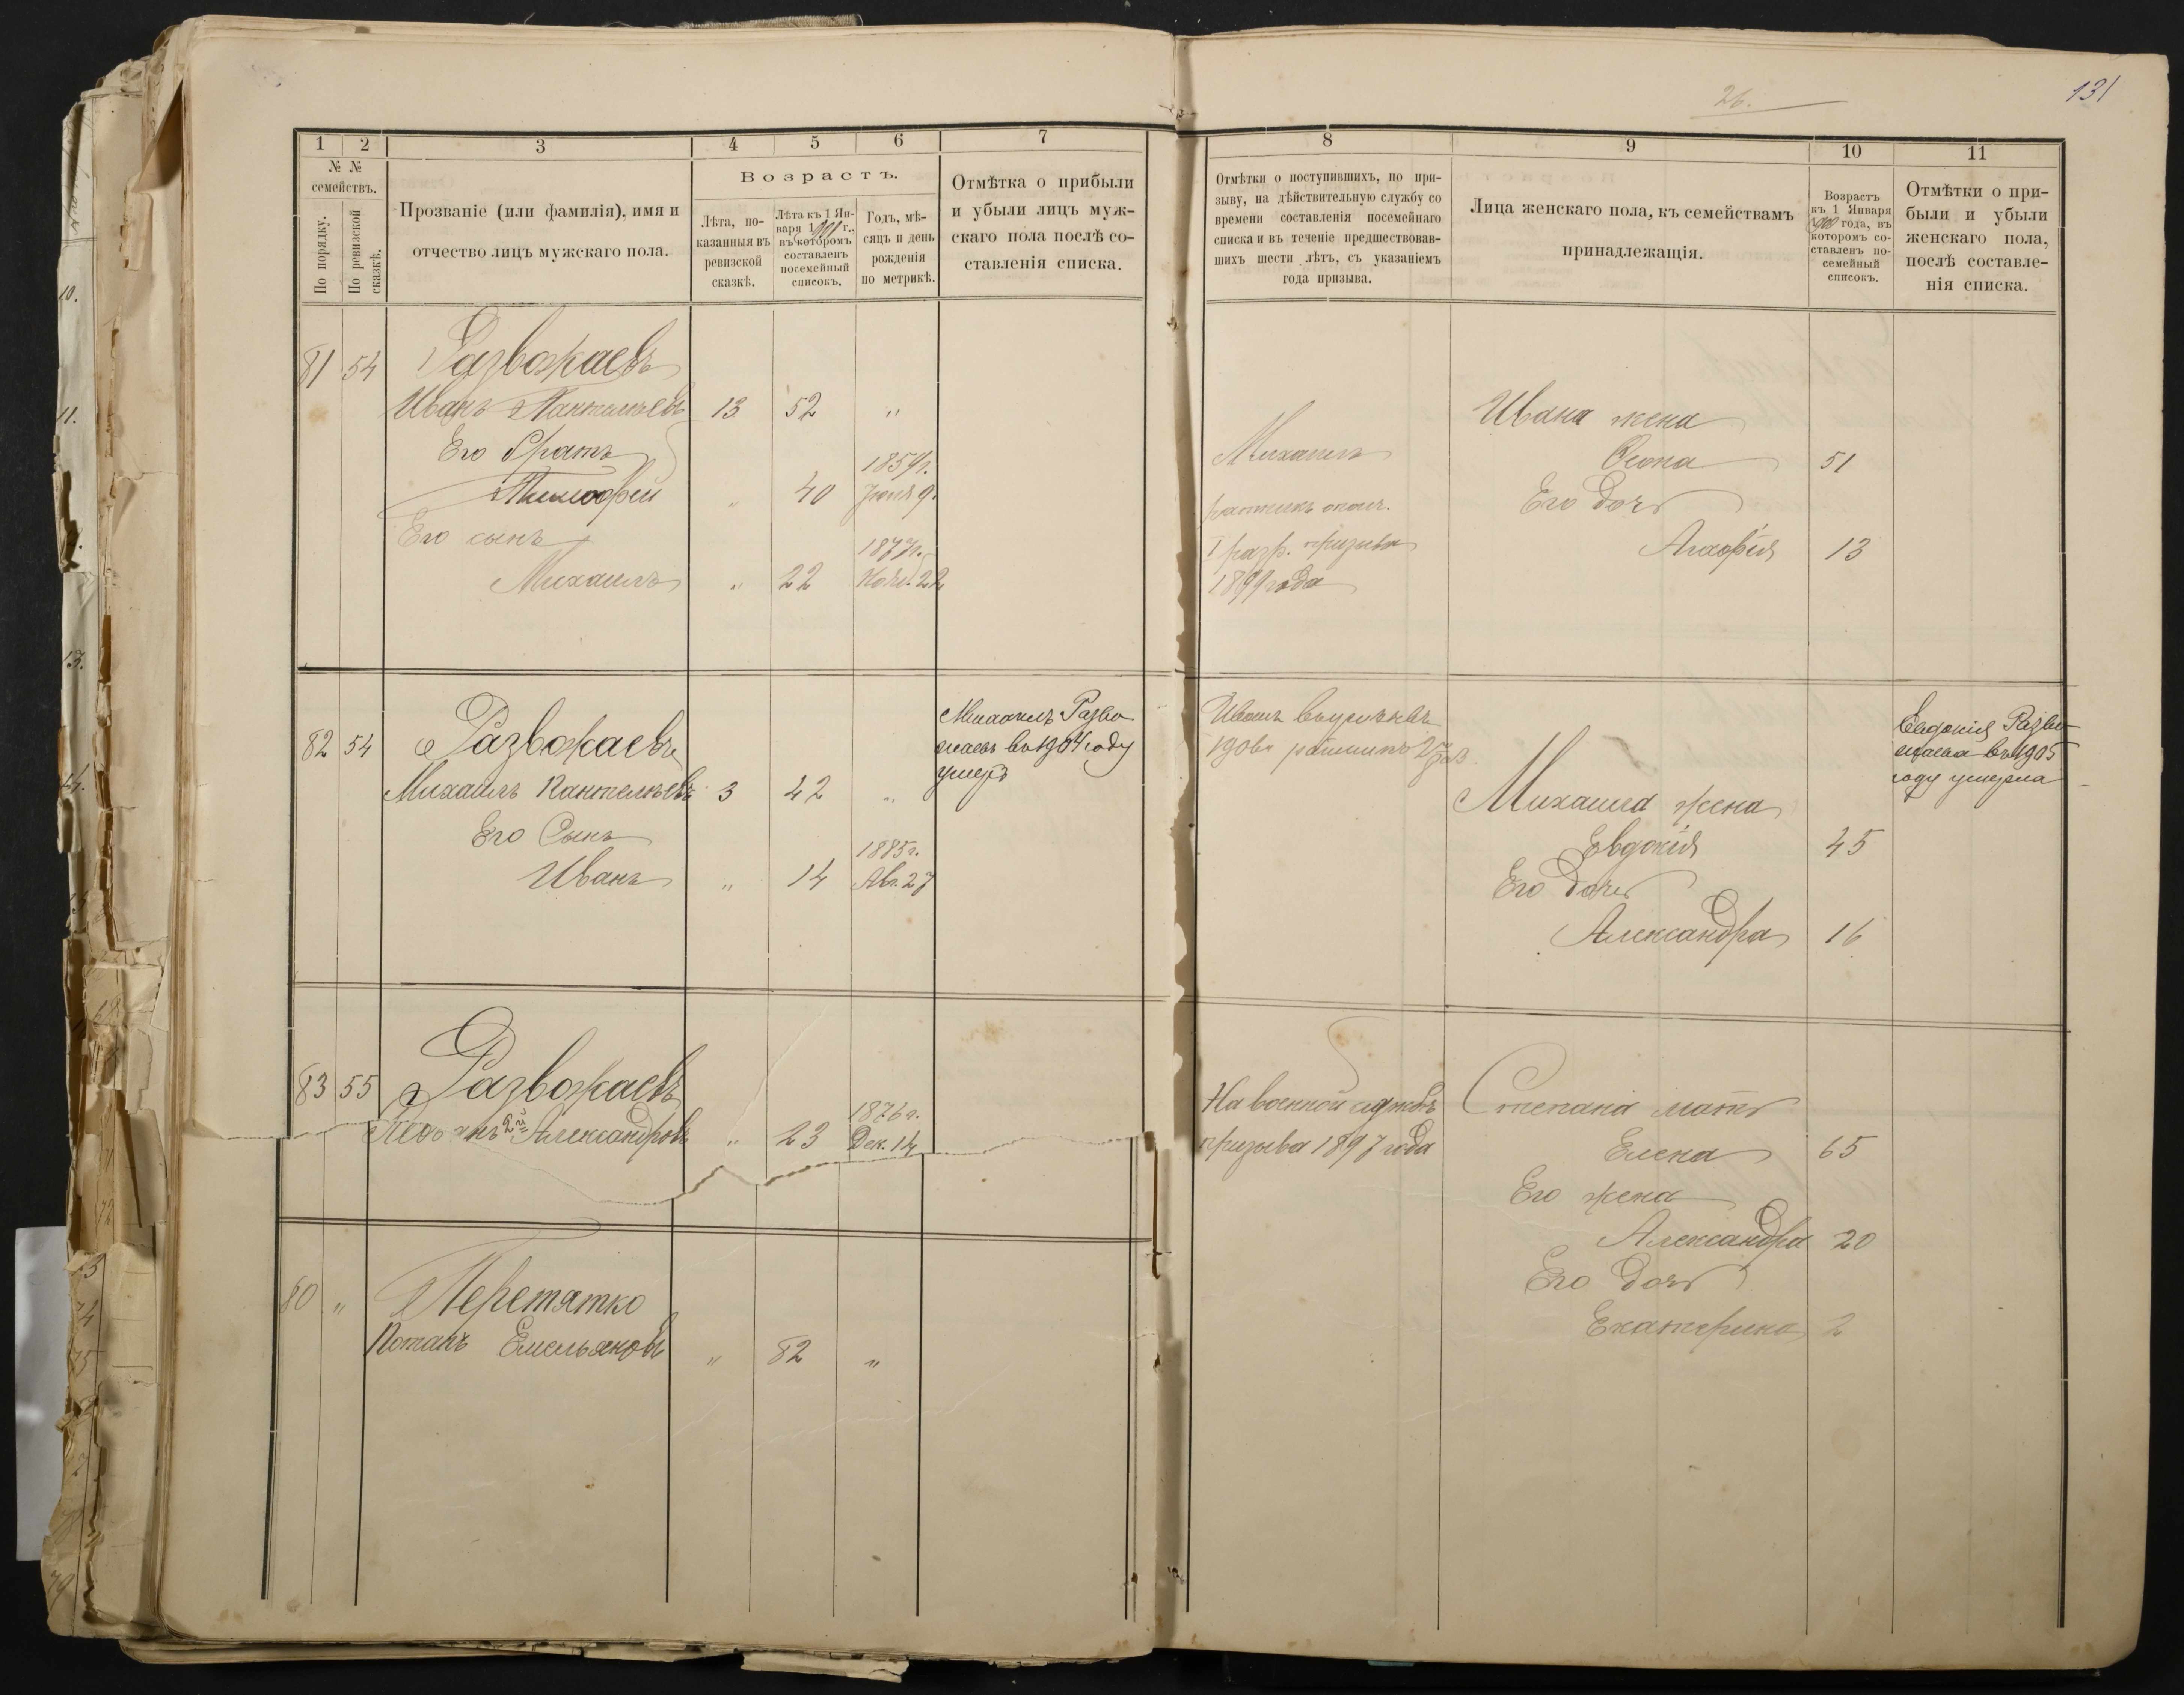 26.
131
1
2
3
4
5
6
7
№ №
семействъ.
По порядку.
По ревизской
сказкѣ.
Прозваніе (или фамилія), имя и
отчество лицъ мужскаго пола.
Возрастъ.
Лѣта, по-
казанныя въ
ревизской
сказкѣ.
Лѣта къ 1 Ян-
варя 1900 г.,
въ которомъ
составленъ
посемейный
списокъ.
Годъ, мѣ-
сяцъ и день
рожденія
по метрикѣ.
Отмѣтка о прибыли
и убыли лицъ муж-
скаго пола послѣ со-
ставленія списка.
81 54 Развожаевъ
Иванъ Пантелѣевъ 13 52 „
Его братъ
Тимофѣй „ 40 1859г. Іюня 9.
Его сынъ
Михаилъ „ 22 1877г. Нояб. 22
82 54 Развожаевъ
Михаилъ Пантелѣевъ 3 42 „
Его Сынъ
Иванъ „ 14 1885г. Авг. 27
Михаилъ Разво
жаевъ въ 1904 году
умеръ
83 55 Развожаевъ
2й Александровъ „ 23 1876г. Дек. 14
80 „ Перетятко
Потапъ Емельяновъ „ 82 „
8
9
10
11
Отмѣтки о поступившихъ, по при-
зыву, на дѣйствительную службу со
времени составленія посемейнаго
списка и въ теченіе предшествовав-
шихъ шести лѣтъ, съ указаніемъ
года призыва.
Лица женскаго пола, къ семействамъ
принадлежащія.
Возрастъ
къ 1 Января
1900 года, въ
которомъ со-
ставленъ по-
семейный
списокъ.
Отмѣтки о при-
были и убыли
женскаго пола,
послѣ составле-
нія списка.
Михаилъ
ратникъ опол.
I разр. призыва
1899 года
Ивана жена
51
Его дочь
Агафія 13
Иванъ
190
Михаила жена
Евдокія 45
Его дочь
Александра 16
Евдокія Разво
жаева въ 1905
году умерла
На военной службѣ
призыва 1897 года
Степана мать
Елена 65
Его жена
Александра 20
Его дочь
Екатерина 2